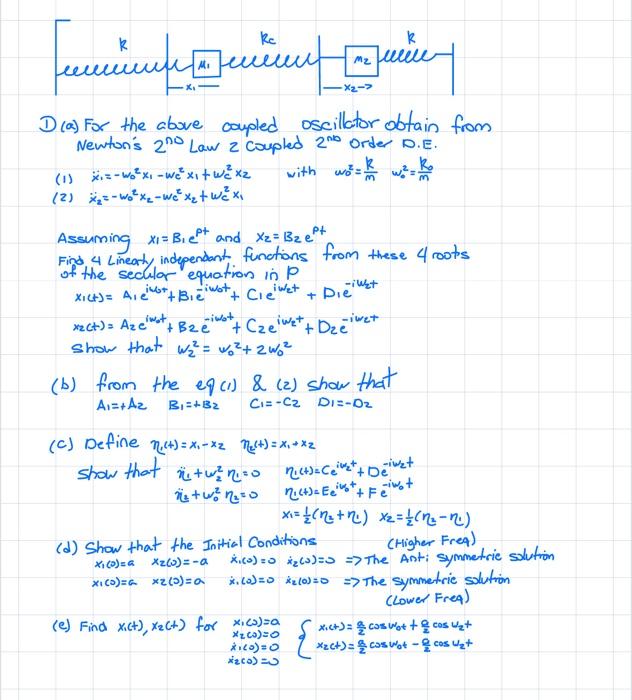 k kc k
M1 M2
x1 x2→
1) (a) For the above coupled oscillator obtain from
Newton's 2nd Law 2 Coupled 2nd Order D.E.
(1) ẍ₁=-ω₀²x₁-ωc²x₁+ωc²x₂ with ω₀²=k/m ω₀²=k₀/m
(2) ẍ₂=-ω₀²x₂-ωc²x₂+ωc²x₁
Assuming x₁=B₁e^pt and x₂=B₂e^pt
Find 4 Linearly independant functions from these 4 roots
of the secular equation in p
x₁(t)= A₁e^iω₀t+B₁e^-iω₀t+C₁e^iω₂t+D₁e^-iω₂t
x₂(t)= A₂e^iω₀t+B₂e^-iω₀t+C₂e^iω₂t+D₂e^-iω₂t
Show that ω₂²=ω₀²+2ω₀²
(b) from the eq (1) & (2) show that
A₁=+A₂ B₁=+B₂ C₁=-C₂ D₁=-D₂
(c) Define η₁(t)=x₁-x₂ η₂(t)=x₁+x₂
Show that η̈₁+ω₂²η₁=0 η₁(t)=Ce^iω₂t+De^-iω₂t
η̈₂+ω₀²η₂=0 η₁(t)=Ee^iω₀t+Fe^-iω₀t
x₁=½(η₂+η₁) x₂=½(η₂-η₁)
(d) Show that the Initial Conditions (Higher Freq)
x₁(0)=a x₂(0)=-a ẋ₁(0)=0 ẋ₂(0)=0 => The Anti symmetric solution
x₁(0)=a x₂(0)=a ẋ₁(0)=0 ẋ₂(0)=0 => The symmetric solution
(Lower Freq)
(e) Find x₁(t), x₂(t) for x₁(0)=a { x₁(t)=a/2 cosω₀t+a/2 cosω₂t
x₂(0)=0 x₂(t)=a/2 cosω₀t-a/2 cosω₂t
ẋ₁(0)=0
ẋ₂(0)=0